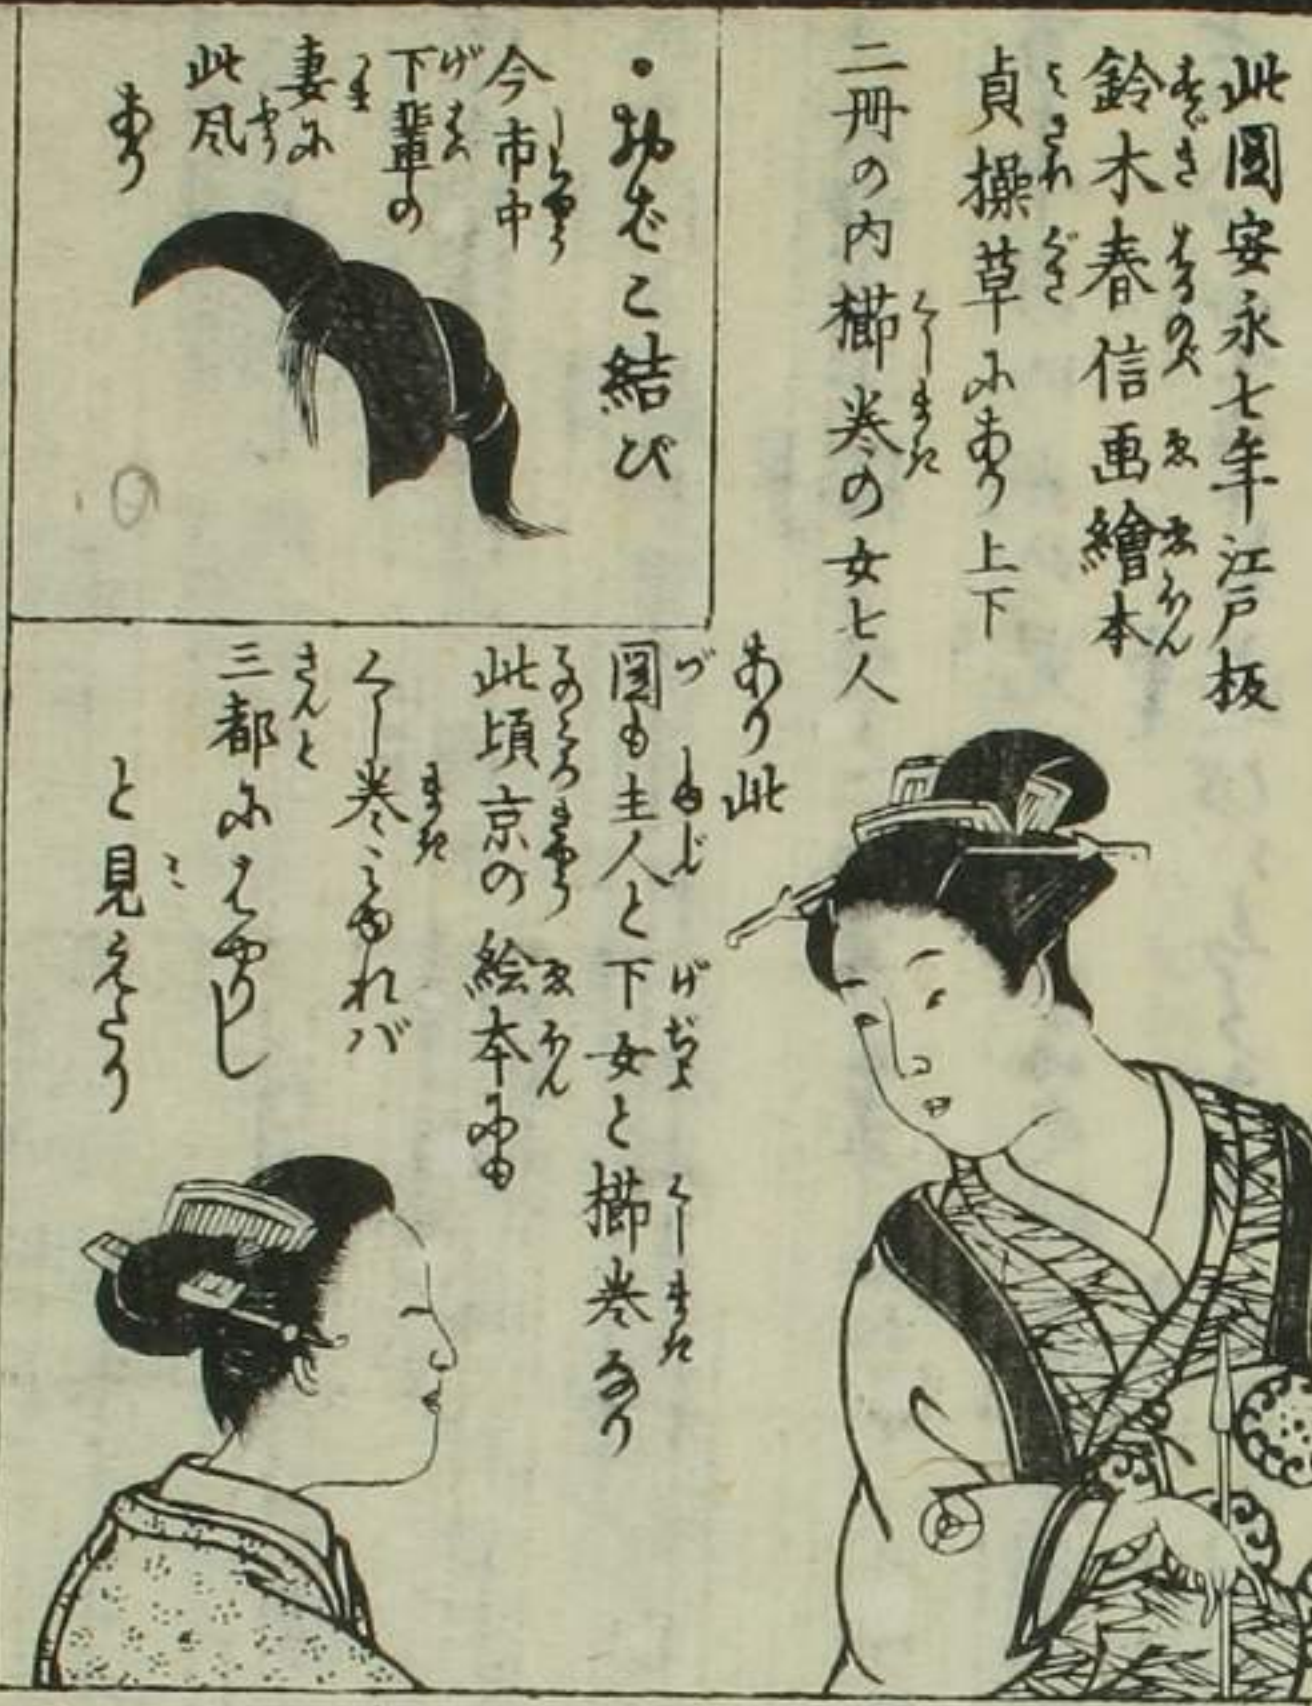 此圖安永七年江戸板
鈴木春信画繪本
貞操草にあり上下
二冊の内櫛巻の女七人
あり此
図も主人と下女と櫛巻なり
此頃京の絵本にも
くし巻みゆれバ
三都にはやりし
と見えたり
・おばこ結び
今市中
下輩の
妻に
此風
あり